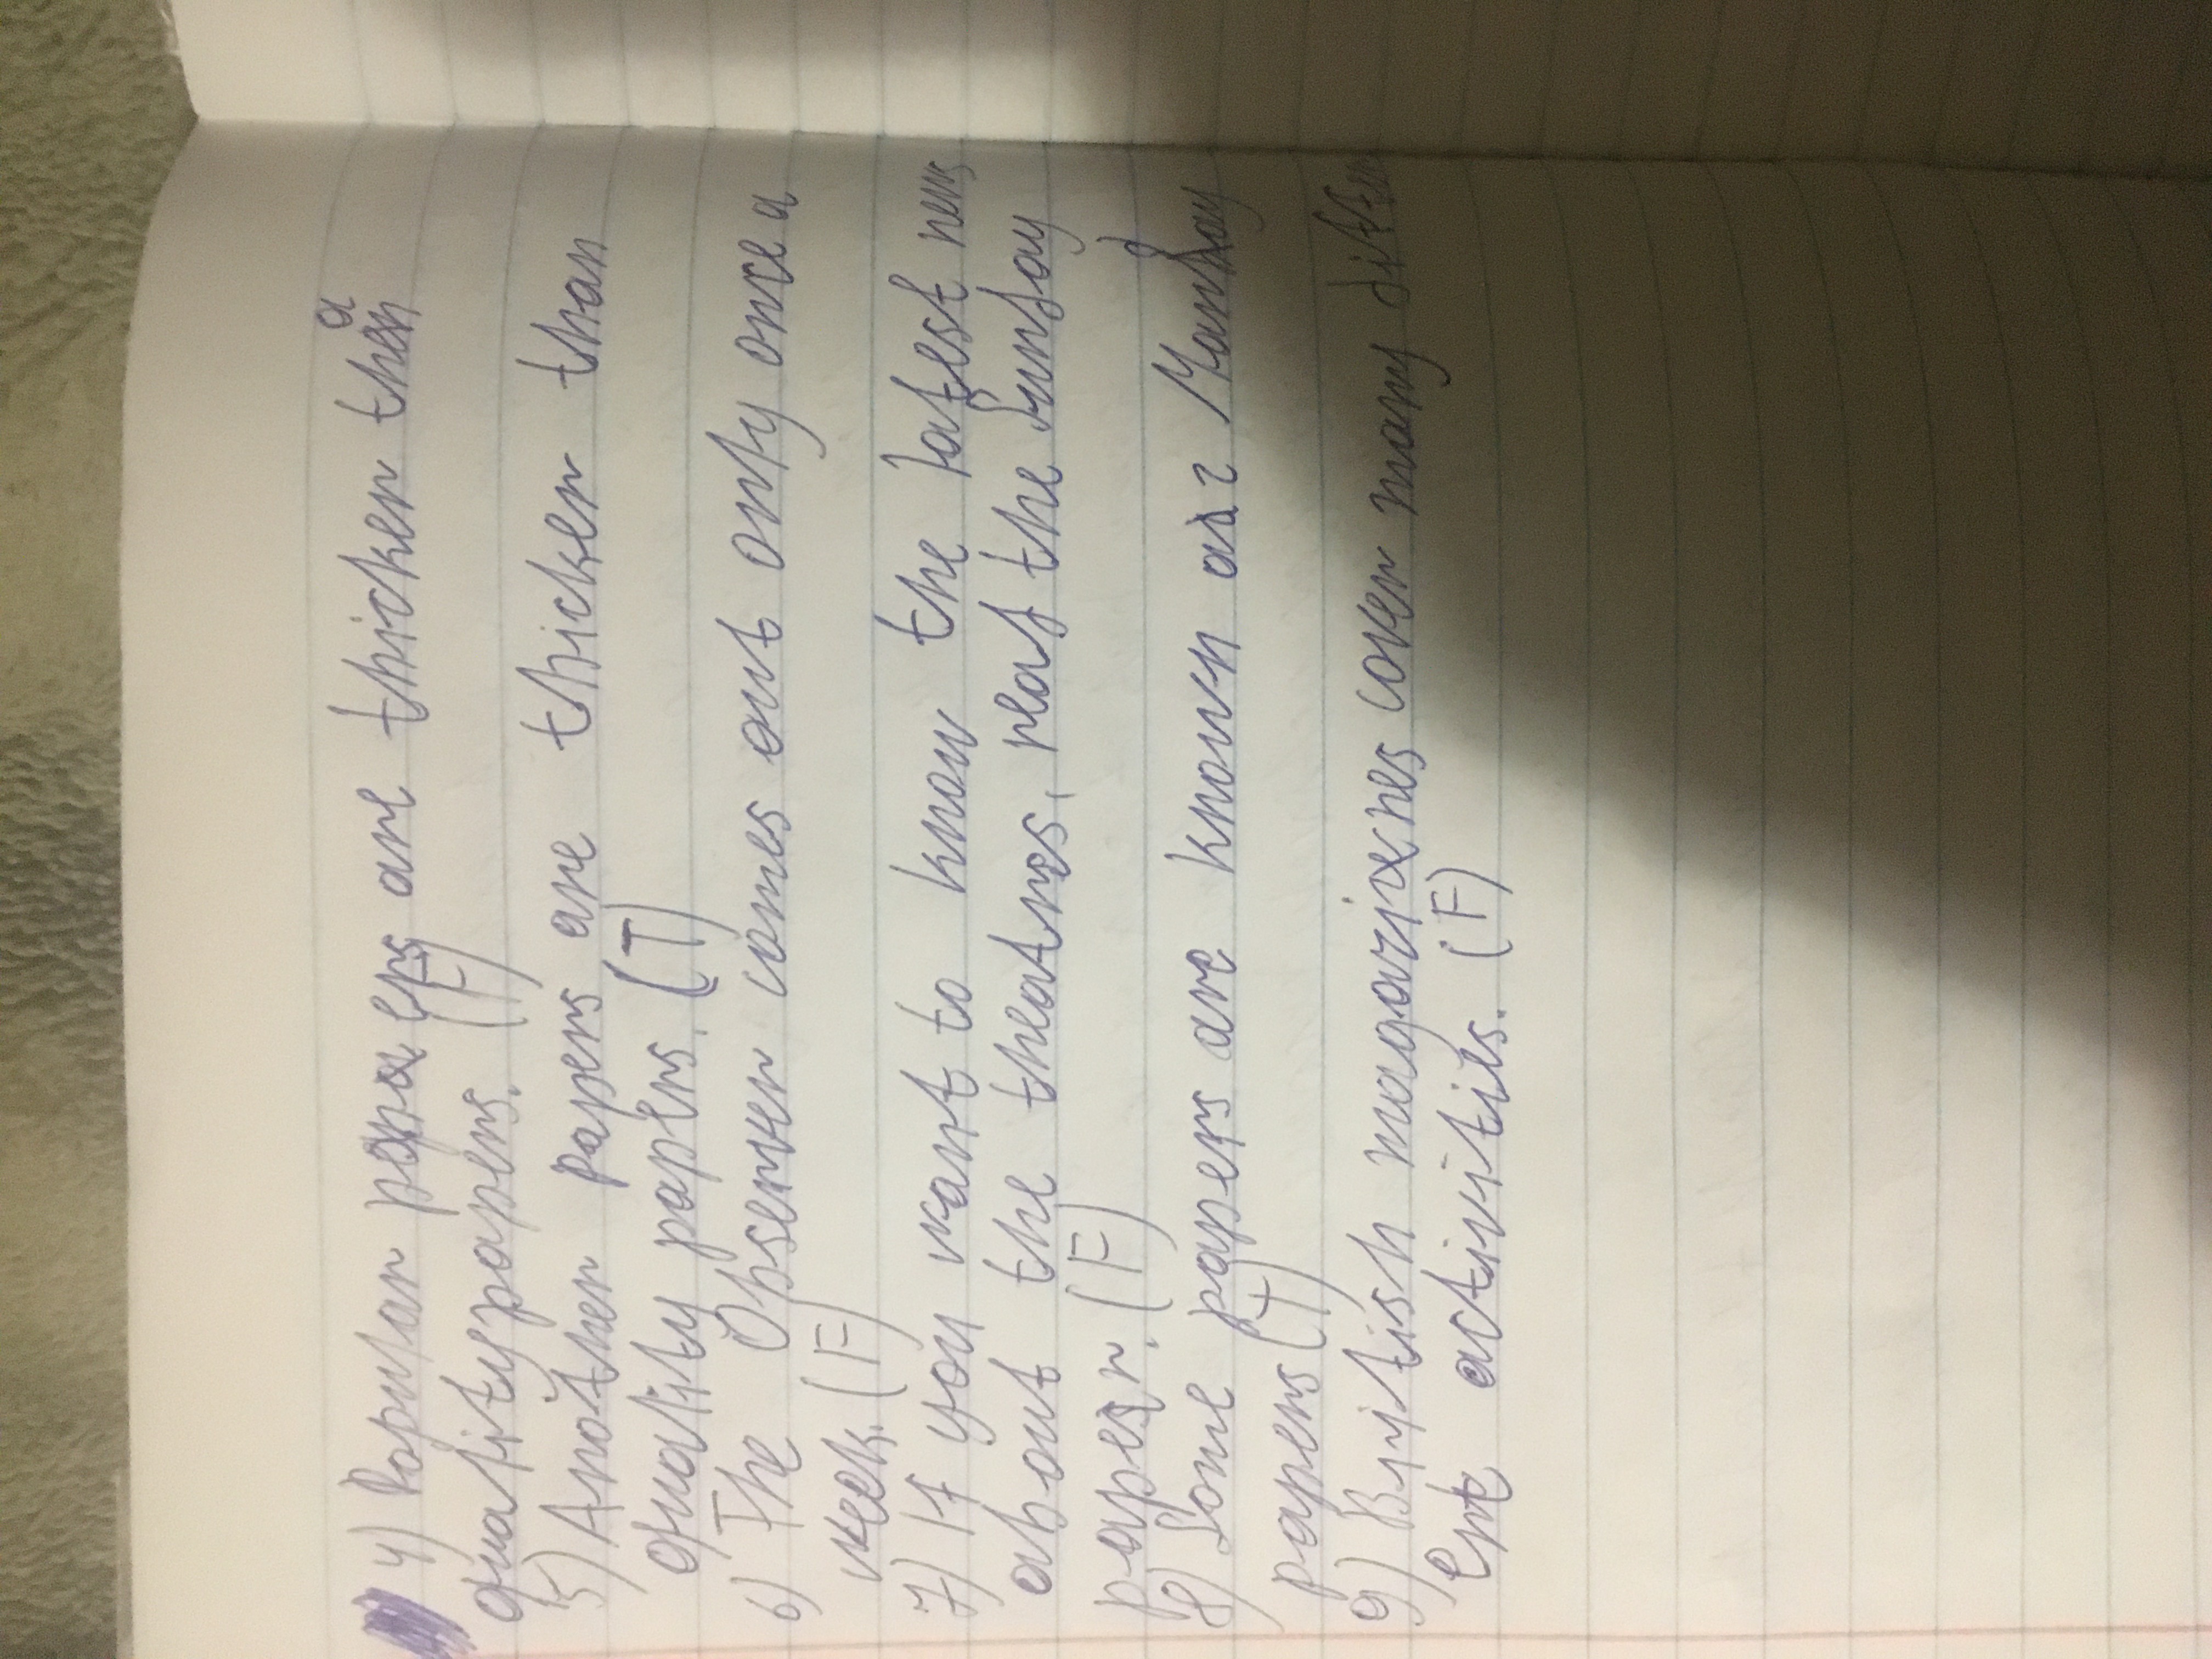 4) Popular papers are thicker than
quality papers. (F)
5) Another papers are thicker than
quality papers. (T)
6) The Observer comes out only once a
week. (F)
7) If you want to know the latest news
about the theatres, read the Sunday
paper. (F)
8) Some papers are known as Manday
papers (T)
9) British magazines cover many differ
ent activities. (F)